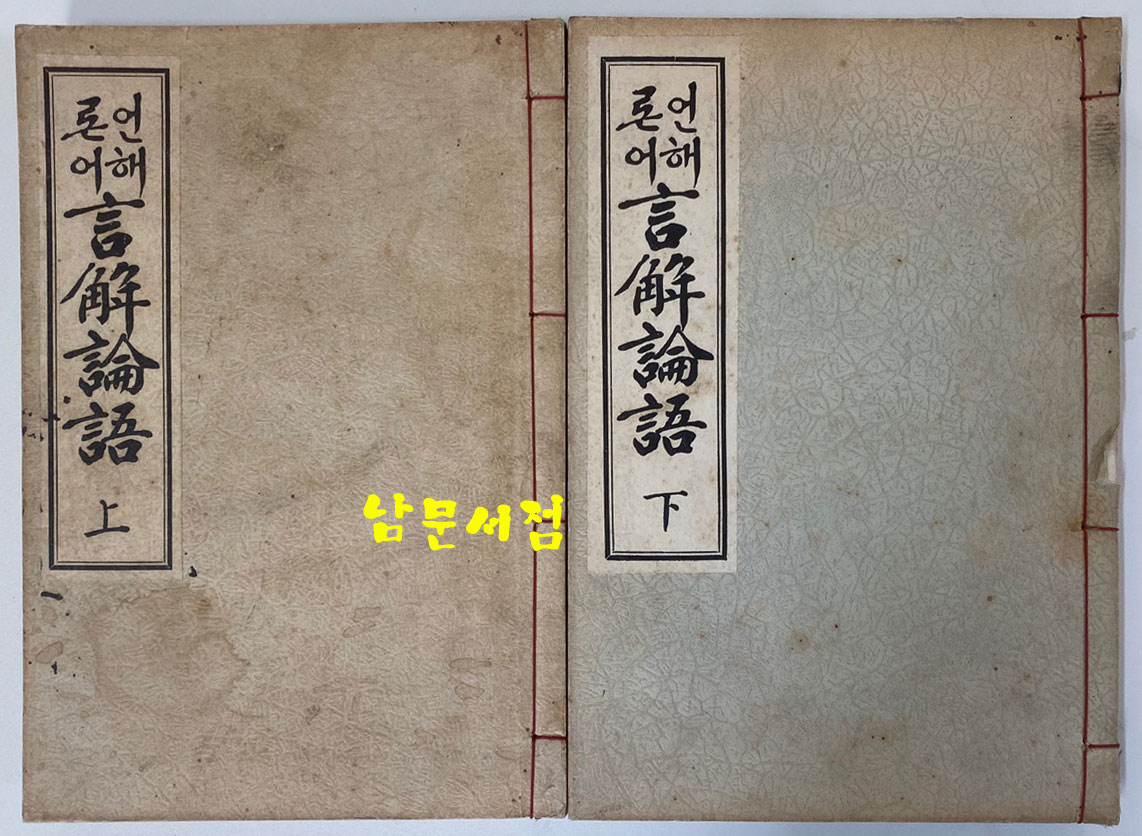 언해
론어
言解論語
上
언해
론어
言解論語
下
남문서점